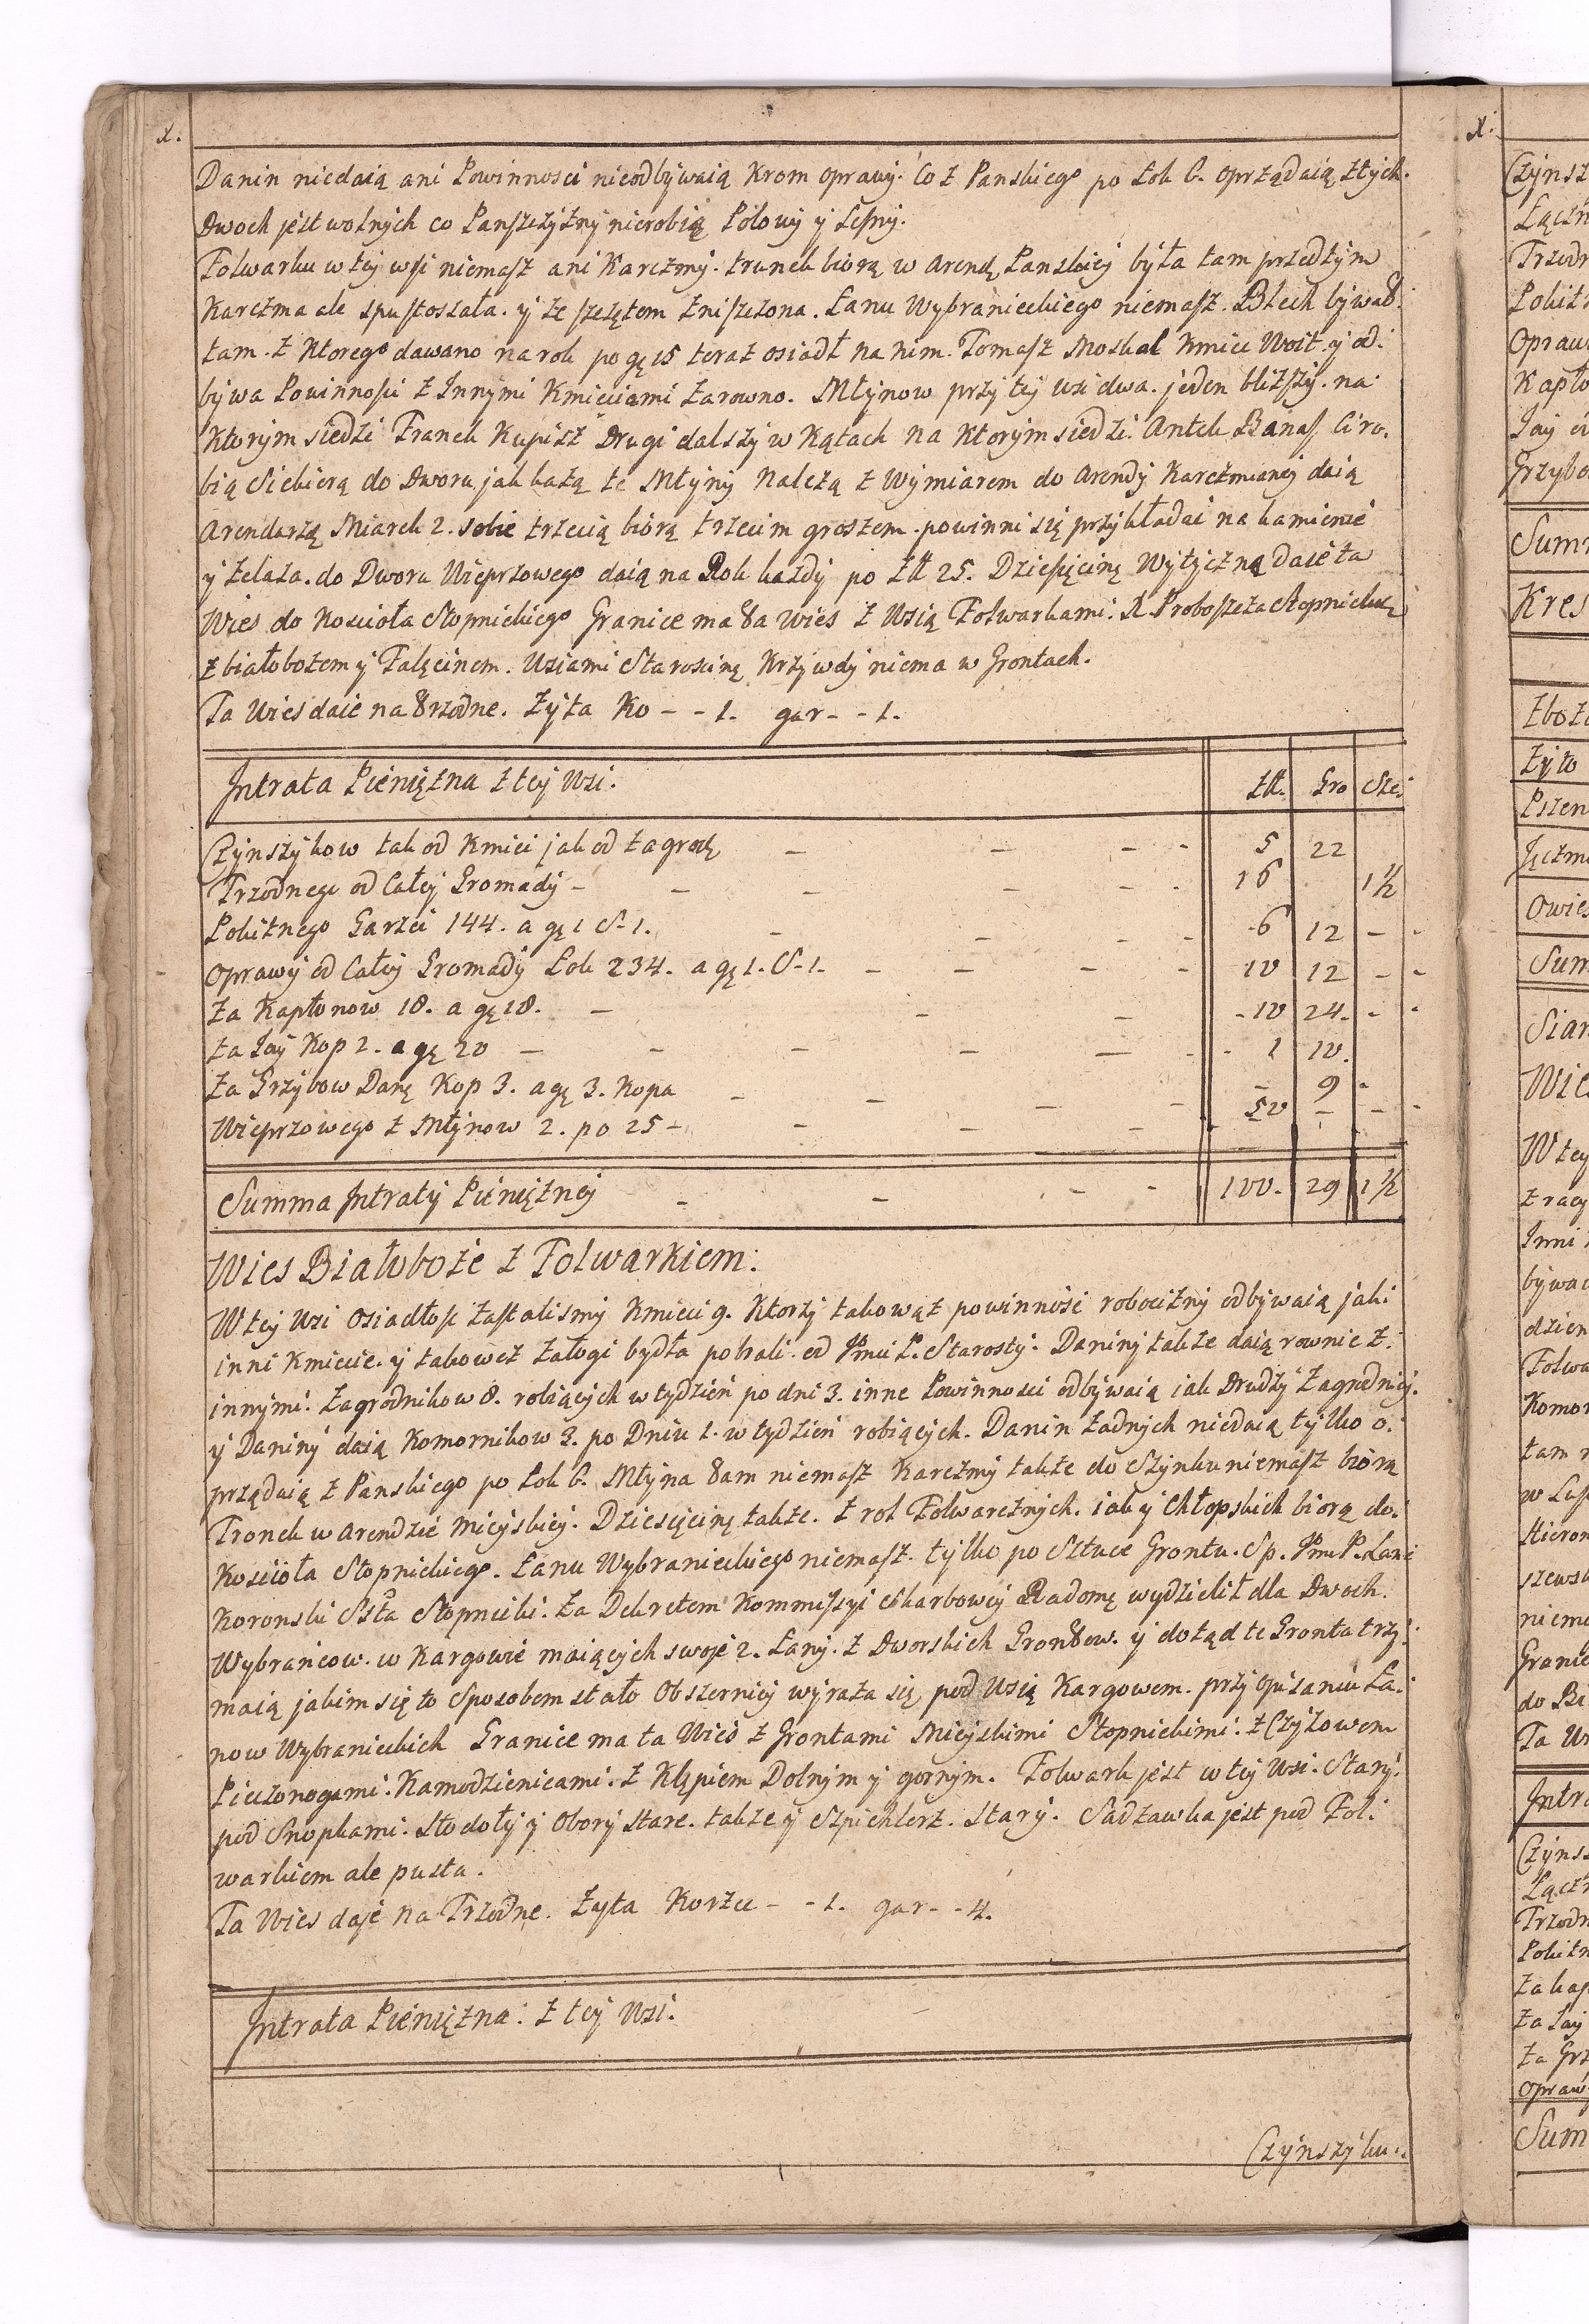 x.
Danin niedaią ani Powinnosci nieodbywaią Krom oprawy. Co z Panskiego po Łok 6. oprządaią z tych.
Dwoch jest wolnych co Panszczyzny nierobią Polowy y Lesny.
Folwarku w tej wsi niemasz ani Karczmy. trunek biorą w Arendę Panskiej była tam przedtym
Karczma ale spustoszała. y ze szczętem zniszczona. Łanu Wybranieckiego niemasz. Blech bywał
tam. z Ktorego dawano na rok po gę 15 teraz osiadł na nim. Tomasz Moskal Kmiec Woit. y od:
bywa Powinnosci z Innymi Kmieciami zarowno. Młynow przy tej wsi dwa. jeden blizszy. na
Ktorym siedzi Franek Kupisz Drugi dalszy w Kątach na Ktorym siedzi. Antek Banas. Ci ro.
bią Siekierą do Dworu jak każą te Młyny Należą z Wymiarem do Arendy Karczmianej daią
Arendarzą Miarek 2. sobie trzecią biorą trzecim groszem powinni się przykładać na kamienie
y żelaza. do Dworu Wieprzowego daią na Rok każdy po Złł 25. Dziesięcinę Wytyczną daie ta
Wies do Koscioła Stopnickiego Granice ma ta Wies z Wsią Folwarkami. X. Proboszcza Stopnickę
z białobożem y Falęcinem. Wsiami Staroscinę Krzywdy niema w Grontach.
Ta Wies daie na Trzodne. Zyta Ko - - 1. gar - - 1.
Intrata Pieniężna z tej Wsi. Złł. Gro Sze:
Czynszykow tak od Kmieci jak od zagrodę - - - - 5 22
Trzodnego od Całej Gromady - - - - - 16 1½
Pobitnego Garzci 144. a gę 1 S-1. - - - 6 12 - -
Oprawy od Całej Gromady Łok 234. a gę 1. S-1. - - - - 10 12 - -
Za Kapłonow 18. a gę 18. - - - - 10 24. - -
Za Jay Kop 2. a gę 20 - - - - - - 1 10.
Za Grzybow Danę Kop 3. a gę 3. Kopa - - - - - 9 -
Wieprzowego z Młynow 2. po 25 - - - - 50 - - -
Summa Intraty Pieniężnej - - - - 100. 29 1½
Wies Białoboże z Folwarkiem:
W tej Wsi Osiadłosc zastalismy Kmieci 9. Ktorzy takowąż powinność robocizny odbywaią jak:
inni Kmiecie. y takoweż załogi bydła pobrali od Jmci P. Starosty. Daniny także daią rownie z.
innymi. Zagrodnikow 8. robiących w tydzień po dni 3. inne Powinnosci odbywaią iak Drudzy Zagrodnicy.
y Daniny daią Komornikow 3. po Dniu 1. w tydzień robiących. Danin żadnych niedaią tylko o:
przędaią z Panskiego po Łok 6. Młyna tam niemasz Karczmy także do Szynku niemasz biorą
Tronek w Arendzie Mieyskiej. Dziesięcinę także. z rol Folwarcznych. iak y Chłopskich biorą do:
Kosciola Stopnickiego. Łanu Wybranieckiego niemasz. tylko po Sztuce Grontu. Sp. Jmci P. Łani
Koronski Ssta Stopnicki. Za Dekretem Kommissyi Skarbowey Radomę wydzielił dla Dwoch.
Wybrańcow. w Kargowie maiących swoje 2. Łany. z Dworskich Grontow. y dotąd te Gronta trzy:
maią jakim się to Sposobem stało Obszerniej wyraża się pod Wsią Kargowem. przy opisaniu Ła:
now Wybranieckich Granice ma ta Wies z Grontami Mieyskimi Stopnickimi. z Czyżowem
Pieczonogami. Kamodzienicami. z Klępiem Dolnym y gornym. Folwark jest w tej Wsi. Stary.
pod Snopkami. Stodoły y Obory stare. także y Szpichlerz. stary. Sadzawka jest pod Fol:
warkiem ale pusta.
Ta Wies daje na Trzodne. Zyta Korzec - - 1. gar - - 4.
Intrata Pieniężna: z tej Wsi.
Czynszyku..
x.